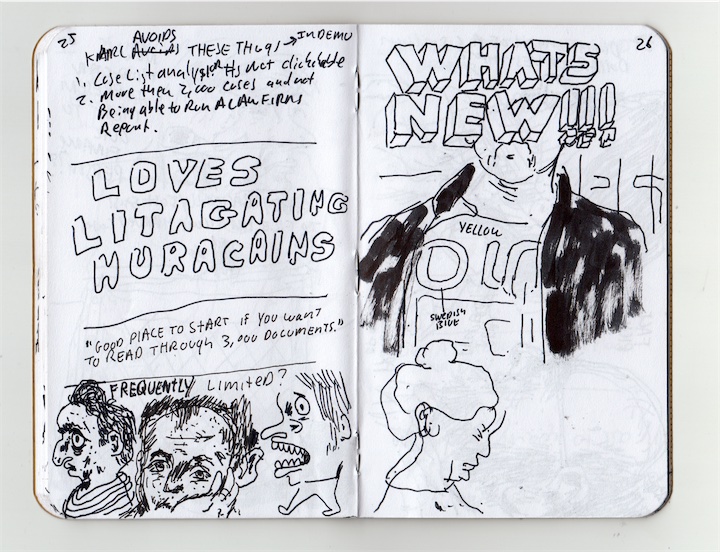 25
AVOIDS
KARL AVOIDS THESE THINGS → IN DEMO
1. Case List analysis Hits not clickable
2. More then 2,000 cases and not
Being able to Run A LAW FIRMS
Report.
LOVES
LITAGATING
HURACAINS
"GOOD PLACE TO START IF YOU WANT
TO READ THROUGH 3,000 DOCUMENTS."
FREQUENTLY LIMITED?
26
WHATS
NEW!!!
YELLOW
SWEDISH
BLUE